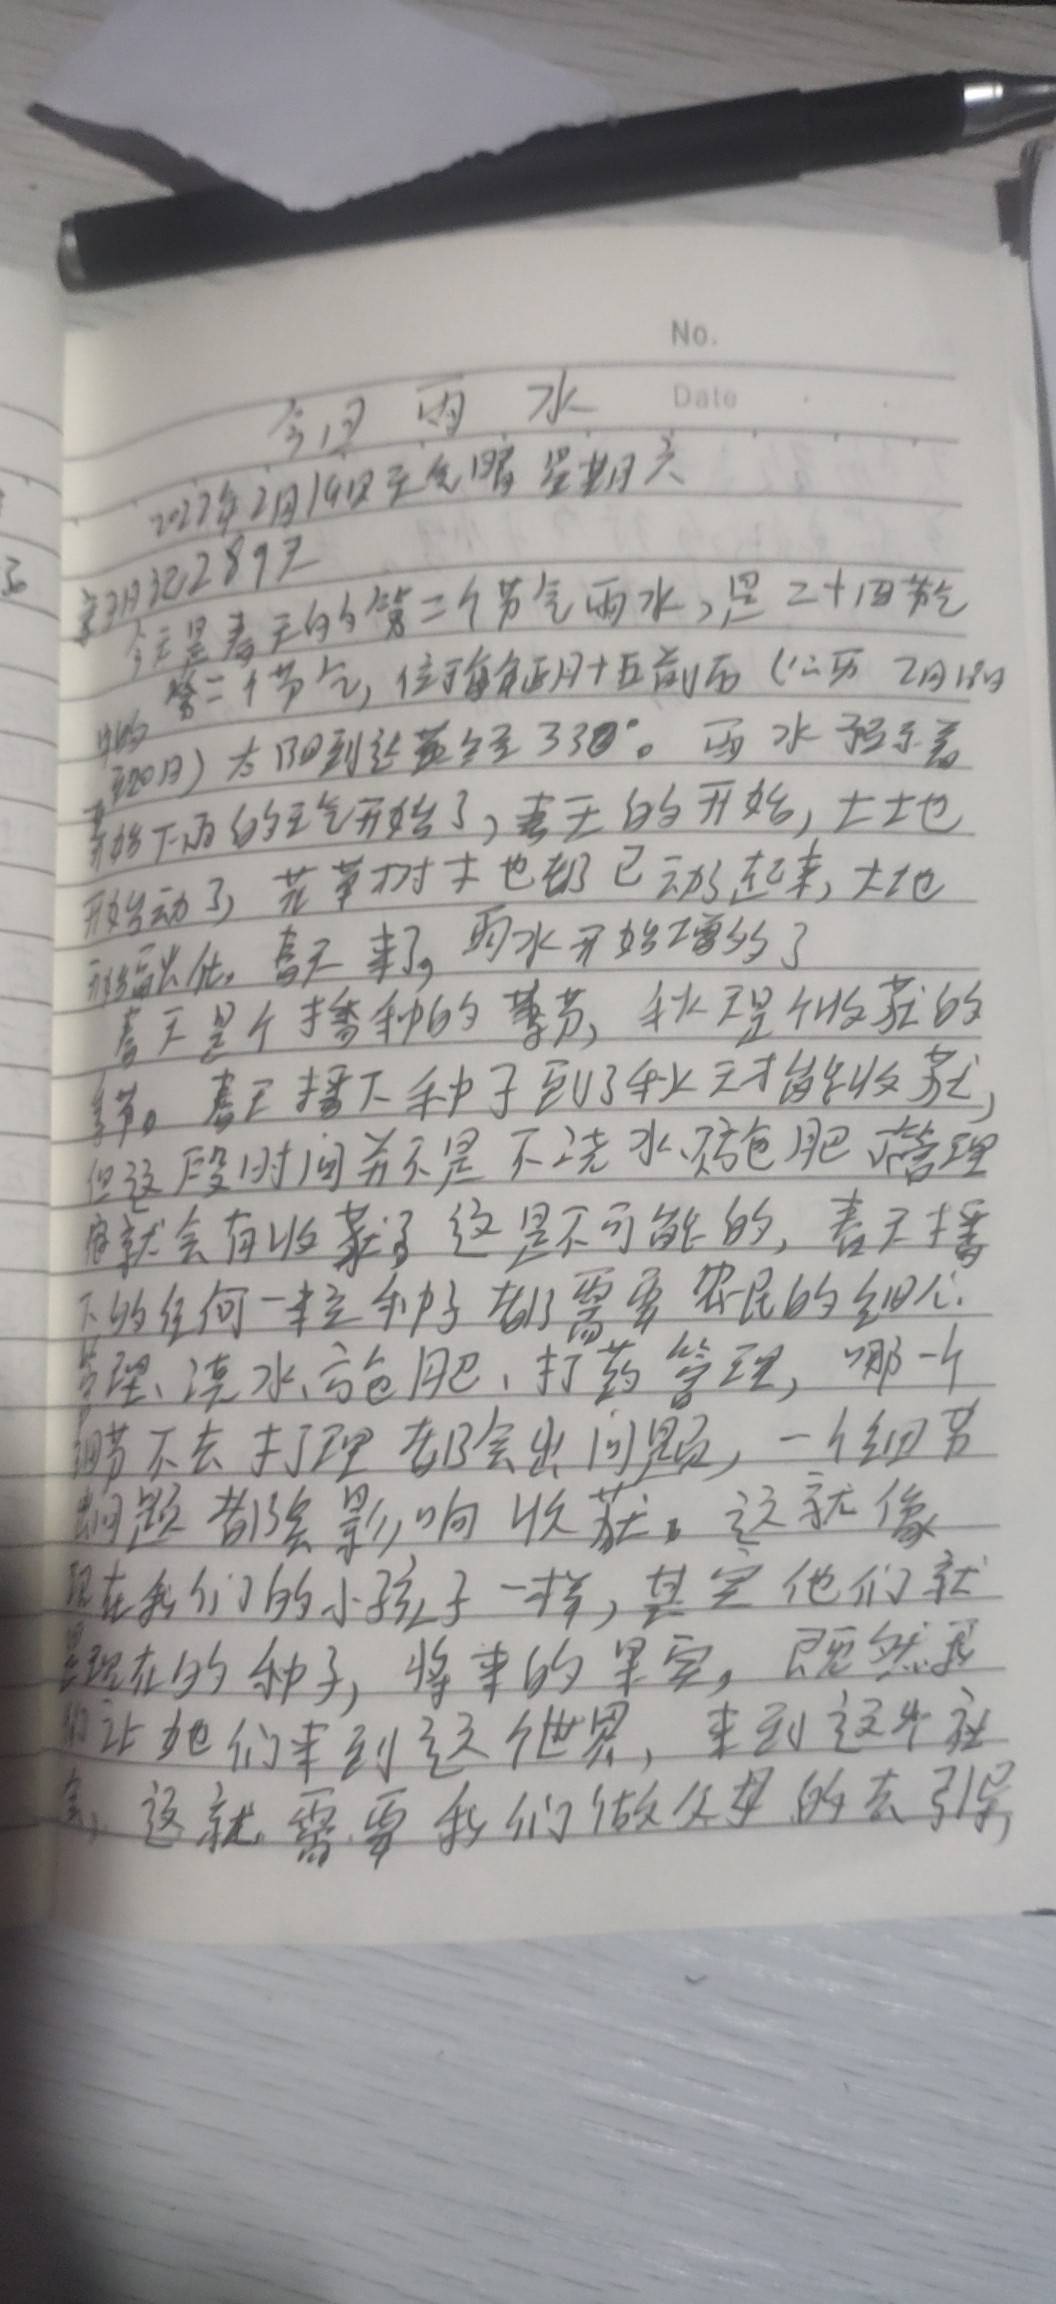 No.
Date
今日 雨 水
2022年2月19日天气晴 星期六
写日记289天
今天是春天的的第二个节气雨水，是二十四节气
中的 第二个节气，位于每年正月十五前后（公历 2月18日
至20日）太阳到达黄经330°。雨水预示着
开始下雨的天气开始了，春天的开始，大土地
开始动了，花草树木也都已动起来，大地
春天来了，雨水开始增多了
春天是个播种的季节，秋天是个收获的
季节。春天播下种子到了秋天才能收获，
但这段时间并不是不浇水、施肥、管理
就会有收获了 这是不可能的，春天播
下的任何一粒种子都需要农民的细心
管理、浇水、施肥、打药管理，哪一个
细节不去打理都会出问题，一个细节
出问题都会影响收获。这就像
现在我们的小孩子一样，其实他们就
是现在的种子，将来的果实。既然我
们让她们来到这个世界，来到这个社
会，这就需要我们做父母的去引导，